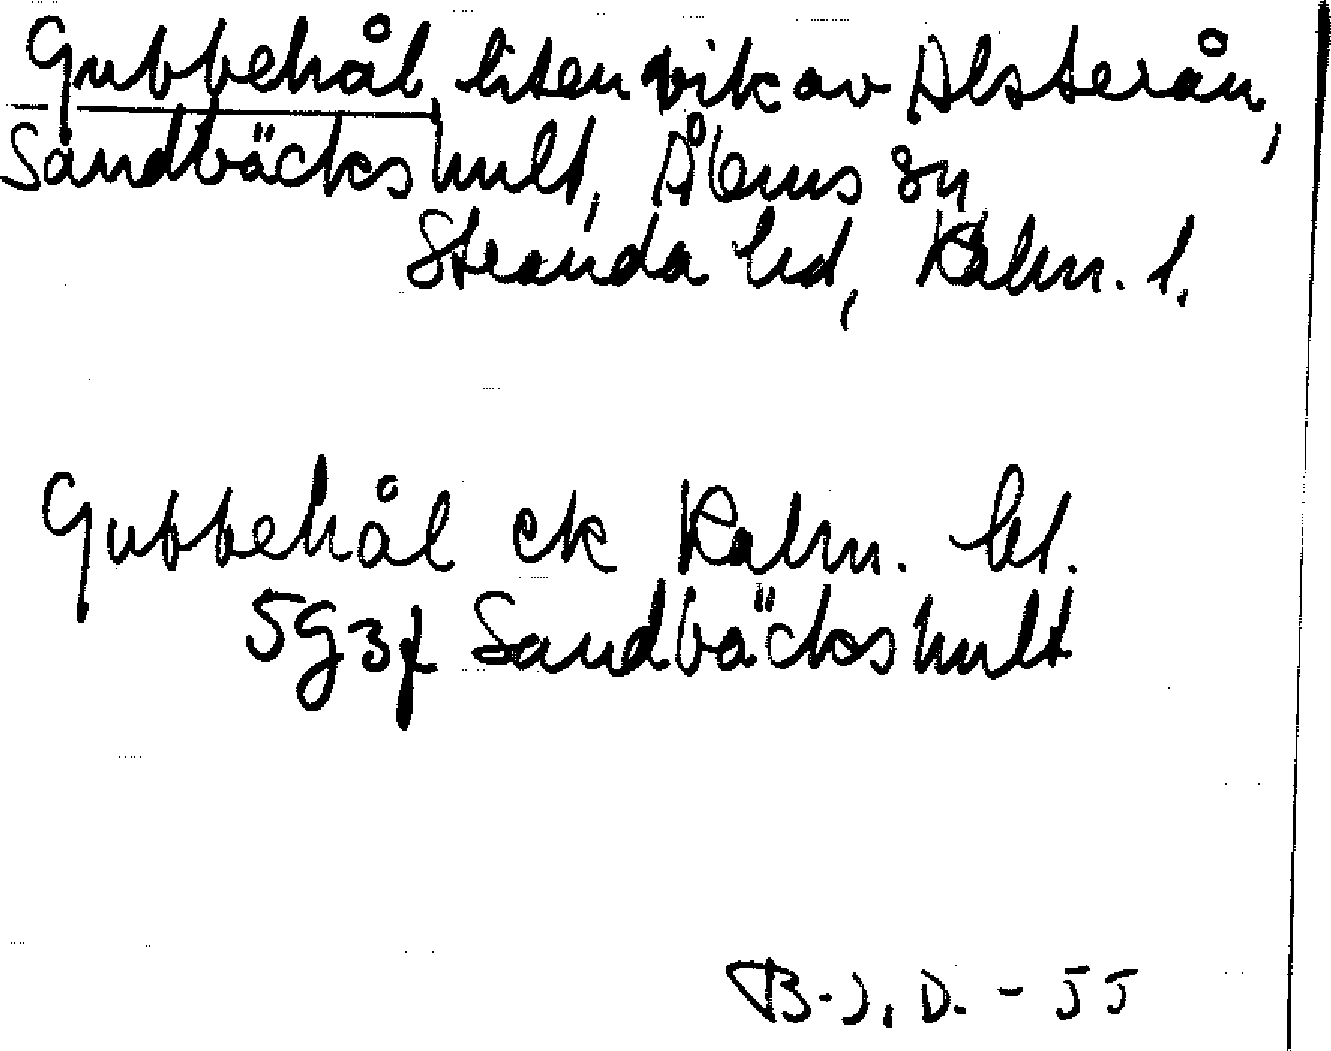 Gubbehål, liten vik av Alsterån,
Sandbäckshult, Ålems sn
Stranda hd, Kalm. l.
Gubbehål ek Kalm. bl.
5G3f Sandbäckshult
B-J. D. - 55